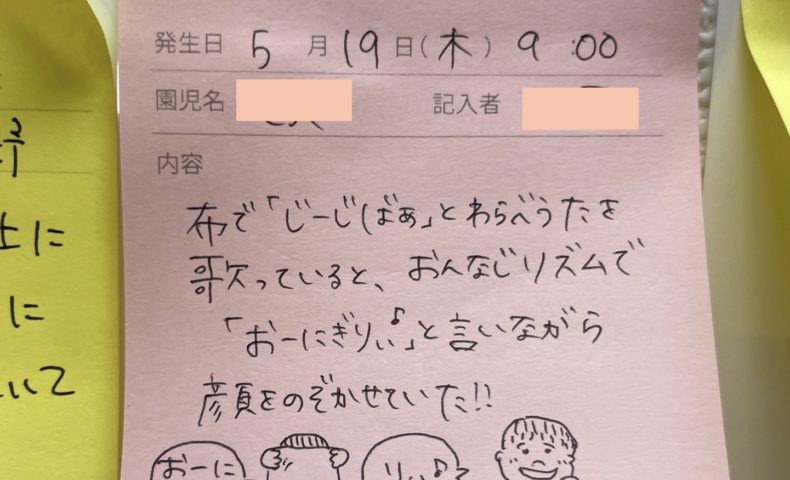 発生日 5月19日(木) 9:00
園児名 記入者
内容
布で「じーじばぁ」とわらべうたを
歌っていると、おんなじリズムで
「おーにぎりぃ♪」と言いながら
顔をのぞかせていた!!
おーに りぃ♪
上に
に
いて